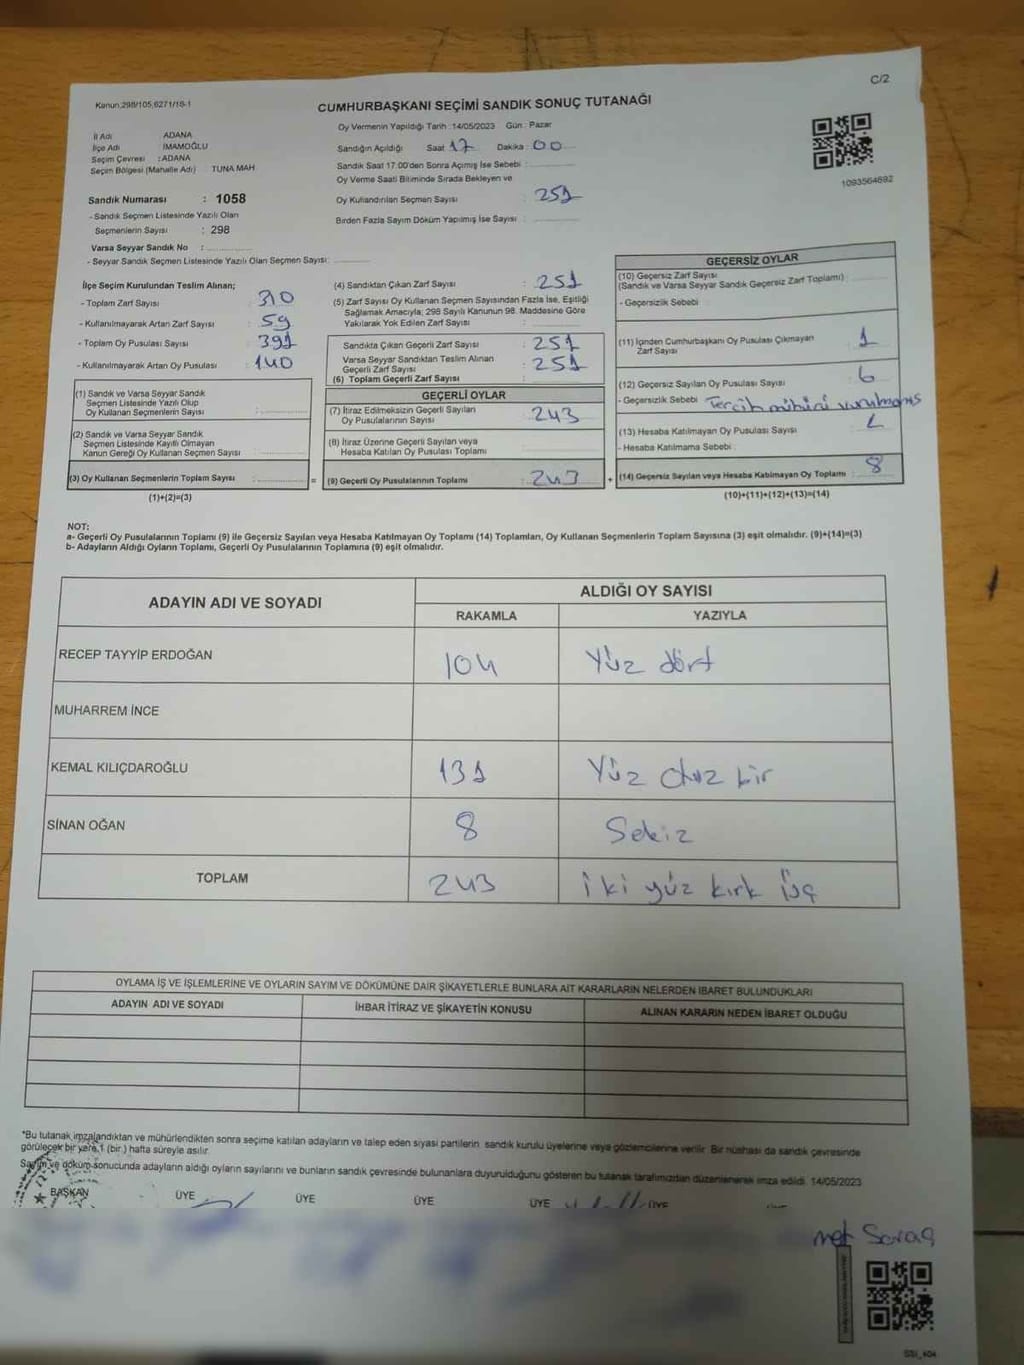 C/2
Kanun,298/105,6271/18-1
CUMHURBAŞKANI SEÇİMİ SANDIK SONUÇ TUTANAĞI
İl Adı ADANA
İlçe Adı İMAMOĞLU
Seçim Çevresi : ADANA
Seçim Bölgesi (Mahalle Adı) TUNA MAH
Sandık Numarası : 1058
- Sandık Seçmen Listesinde Yazılı Olan
Seçmenlerin Sayısı : 298
Varsa Seyyar Sandık No :
- Seyyar Sandık Seçmen Listesinde Yazılı Olan Seçmen Sayısı:
Oy Vermenin Yapıldığı Tarih :14/05/2023 Gün : Pazar
Sandığın Açıldığı Saat 17 Dakika : 00
Sandık Saat 17:00'den Sonra Açımış İse Sebebi :
Oy Verme Saati Bitiminde Sırada Bekleyen ve
Oy Kullandırılan Seçmen Sayısı : 251
Birden Fazla Sayım Döküm Yapılmış İse Sayısı :
1093564692
İlçe Seçim Kurulundan Teslim Alınan;
- Toplam Zarf Sayısı : 310
- Kullanılmayarak Artan Zarf Sayısı : 59
- Toplam Oy Pusulası Sayısı : 391
- Kullanılmayarak Artan Oy Pusulası : 140
(1) Sandık ve Varsa Seyyar Sandık
Seçmen Listesinde Yazılı Olup
Oy Kullanan Seçmenlerin Sayısı :
(2) Sandık ve Varsa Seyyar Sandık
Seçmen Listesinde Kayıtlı Olmayan
Kanun Gereği Oy Kullanan Seçmen Sayısı :
(3) Oy Kullanan Seçmenlerin Toplam Sayısı : =
(1)+(2)=(3)
(4) Sandıktan Çıkan Zarf Sayısı : 251
(5) Zarf Sayısı Oy Kullanan Seçmen Sayısından Fazla İse, Eşitliği
Sağlamak Amacıyla; 298 Sayılı Kanunun 98. Maddesine Göre
Yakılarak Yok Edilen Zarf Sayısı :
Sandıkta Çıkan Geçerli Zarf Sayısı : 251
Varsa Seyyar Sandıktan Teslim Alınan
Geçerli Zarf Sayısı : 251
(6) Toplam Geçerli Zarf Sayısı :
GEÇERLİ OYLAR
(7) İtiraz Edilmeksizin Geçerli Sayılan
Oy Pusulalarının Sayısı : 243
(8) İtiraz Üzerine Geçerli Sayılan veya
Hesaba Katılan Oy Pusulası Toplamı :
(9) Geçerli Oy Pusulalarının Toplamı : 243 +
GEÇERSİZ OYLAR
(10) Geçersiz Zarf Sayısı
(Sandık ve Varsa Seyyar Sandık Geçersiz Zarf Toplamı) :
- Geçersizlik Sebebi :
(11) İçinden Cumhurbaşkanı Oy Pusulası Çıkmayan
Zarf Sayısı : 1
(12) Geçersiz Sayılan Oy Pusulası Sayısı : 6
- Geçersizlik Sebebi : Tercih mührü vurulmamış
(13) Hesaba Katılmayan Oy Pusulası Sayısı :
- Hesaba Katılmama Sebebi :
(14) Geçersiz Sayılan veya Hesaba Katılmayan Oy Toplamı : 8
(10)+(11)+(12)+(13)=(14)
NOT:
a- Geçerli Oy Pusulalarının Toplamı (9) ile Geçersiz Sayılan veya Hesaba Katılmayan Oy Toplamı (14) Toplamları, Oy Kullanan Seçmenlerin Toplam Sayısına (3) eşit olmalıdır. (9)+(14)=(3)
b- Adayların Aldığı Oyların Toplamı, Geçerli Oy Pusulalarının Toplamına (9) eşit olmalıdır.
ADAYIN ADI VE SOYADI ALDIĞI OY SAYISI
RAKAMLA YAZIYLA
RECEP TAYYİP ERDOĞAN 104 Yüz dört
MUHARREM İNCE
KEMAL KILIÇDAROĞLU 131 Yüz otuz bir
SİNAN OĞAN 8 Sekiz
TOPLAM 243 iki yüz kırk üç
OYLAMA İŞ VE İŞLEMLERİNE VE OYLARIN SAYIM VE DÖKÜMÜNE DAİR ŞİKAYETLERLE BUNLARA AİT KARARLARIN NELERDEN İBARET BULUNDUKLARI
ADAYIN ADI VE SOYADI İHBAR İTİRAZ VE ŞİKAYETİN KONUSU ALINAN KARARIN NEDEN İBARET OLDUĞU
*Bu tutanak imzalandıktan ve mühürlendikten sonra seçime katılan adayların ve talep eden siyasi partilerin sandık kurulu üyelerine veya gözlemcilerine verilir. Bir nüshası da sandık çevresinde
görülecek bir yere 1 (bir) hafta süreyle asılır.
Sayım ve döküm sonucunda adayların aldığı oyların sayılarını ve bunların sandık çevresinde bulunanlara duyurulduğunu gösteren bu tutanak tarafımızdan düzenlenerek imza edildi. 14/05/2023
BAŞKAN ÜYE ÜYE ÜYE ÜYE ÜYE
met Saraç